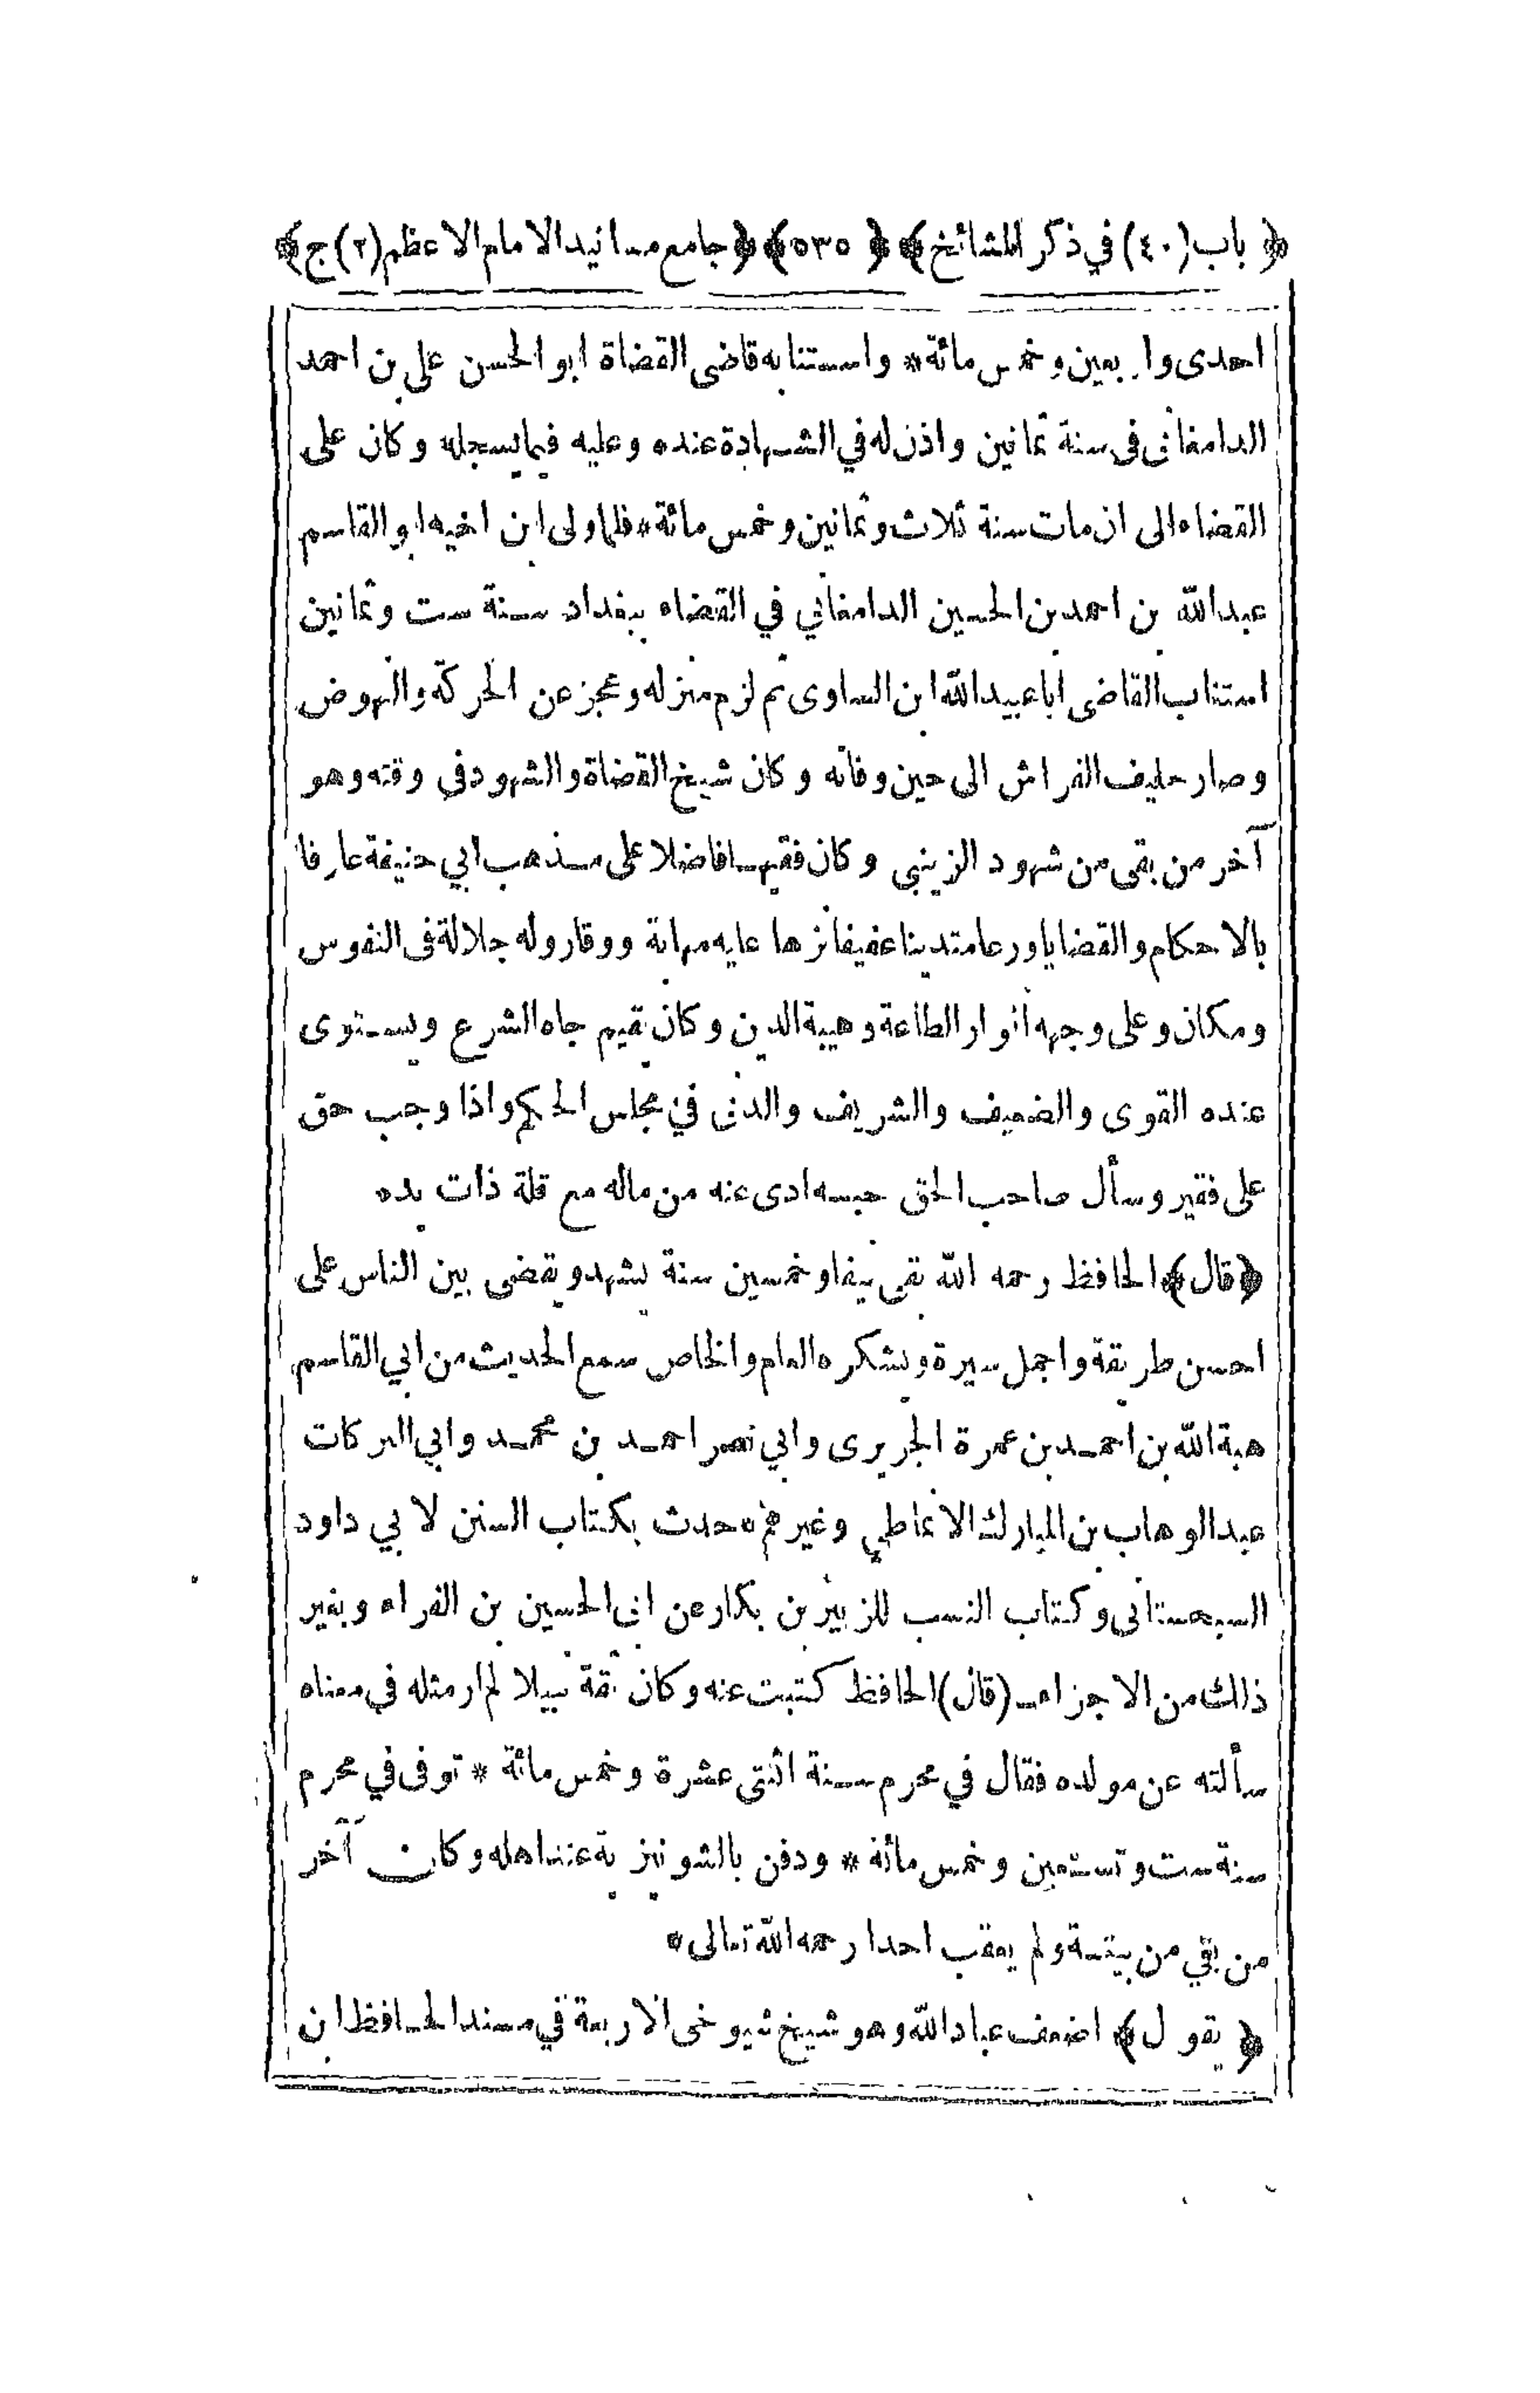 ﴿ باب (٤٠) في ذكر المشائخ ﴾ ﴿ ٥٣٥ ﴾ ﴿ جامع مسانيد الامام الاعظم (٢) ج ﴾
احدى واربعين وخمس مائة * واستنابه قاضى القضاة ابو الحسن على بن احمد
الدامغانى فى سنة ثمانين واذن له في الشهادة عنده وعليه فيما يسجله وكان على
القضاء الى ان مات سنة ثلاث وثمانين وخمس مائة * فلما ولى ابن اخيه ابو القاسم
عبد الله بن احمد بن الحسين الدامغاني في القضاء ببغداد سنة ست وثمانين
استناب القاضى ابا عبيد الله ابن الساوى ثم لزم منزله وعجز عن الحركة والنهوض
وصار حليف الفراش الى حين وفاته وكان شيخ القضاة والشهود في وقته وهو
آخر من بقى من شهود الزينبي وكان فقيها فاضلا على مذهب ابي حنيفة عارفا
بالاحكام والقضايا ورعا متدينا عفيفا نزها عليه مهابة ووقار وله جلالة فى النفوس
ومكان وعلى وجهه انوار الطاعة وهيبة الدين وكان يقيم جاه الشرع ويستوى
عنده القوى والضعيف والشريف والدنى في مجلس الحكم واذا وجب حق
على فقير وسأل صاحب الحق حبسه ادى عنه من ماله مع قلة ذات يده
﴿ قال ﴾ الحافظ رحمه الله بقى نيفا وخمسين سنة يشهد ويقضى بين الناس على
احسن طريقة واجمل سيرة ويشكره العام والخاص سمع الحديث من ابي القاسم
هبة الله بن احمد بن عمرة الجريرى وابي نصر احمد بن محمد وابي البركات
عبد الوهاب بن المبارك الانماطي وغيرهم * حدث بكتاب السنن لابي داود
السجستانى وكتاب النسب للزبير بن بكار عن ابى الحسين بن الفراء وبغير
ذلك من الاجزاء (قال) الحافظ كتبت عنه وكان ثقة نبيلا لم ار مثله في معناه
سألته عن مولده فقال في محرم سنة اثنتى عشرة وخمس مائة * توفى في محرم
سنة ست وتسعين وخمس مائة * ودفن بالشونيزية عند اهله وكان آخر
من بقي من بيته ولم يعقب احدا رحمه الله تعالى *
﴿ يقول ﴾ اضعف عباد الله وهو شيخ شيوخى الاربعة في مسند الحافظ ابن